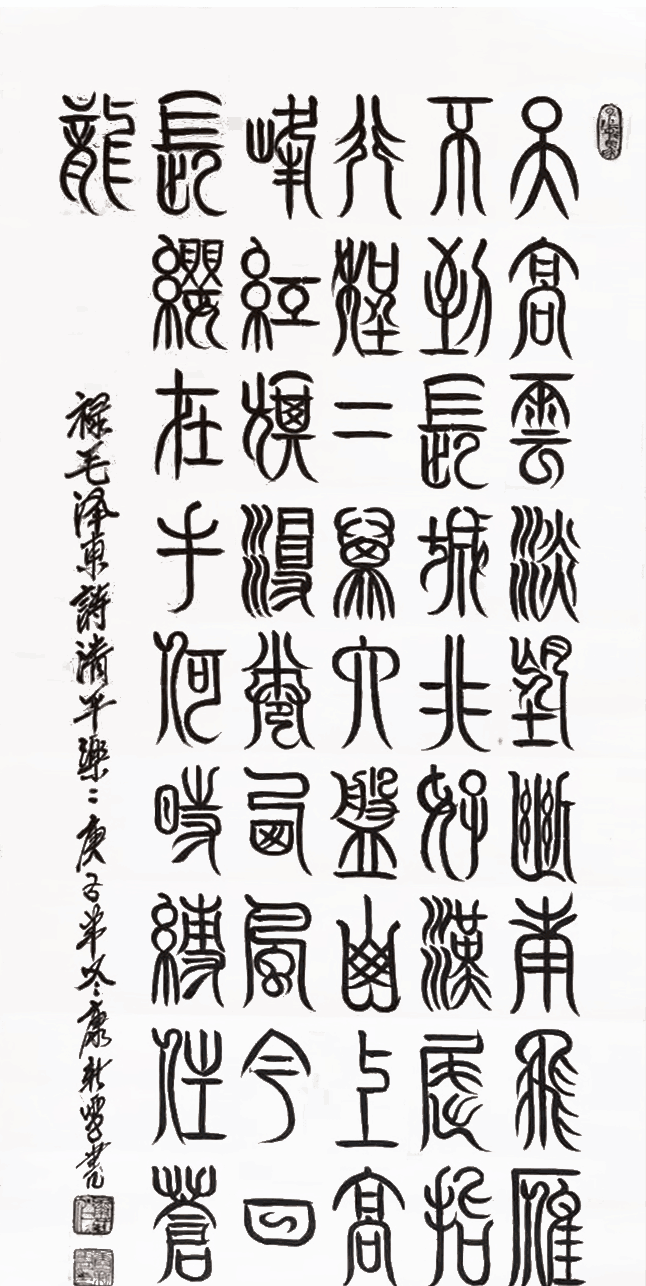 天高雲淡望斷南飛雁
不到長城非好漢屈指
行程二萬六盤山上高
峰紅旗漫卷西風今日
長纓在手何時縛住蒼
龍
禄毛泽東詩清平樂庚子年冬康新書